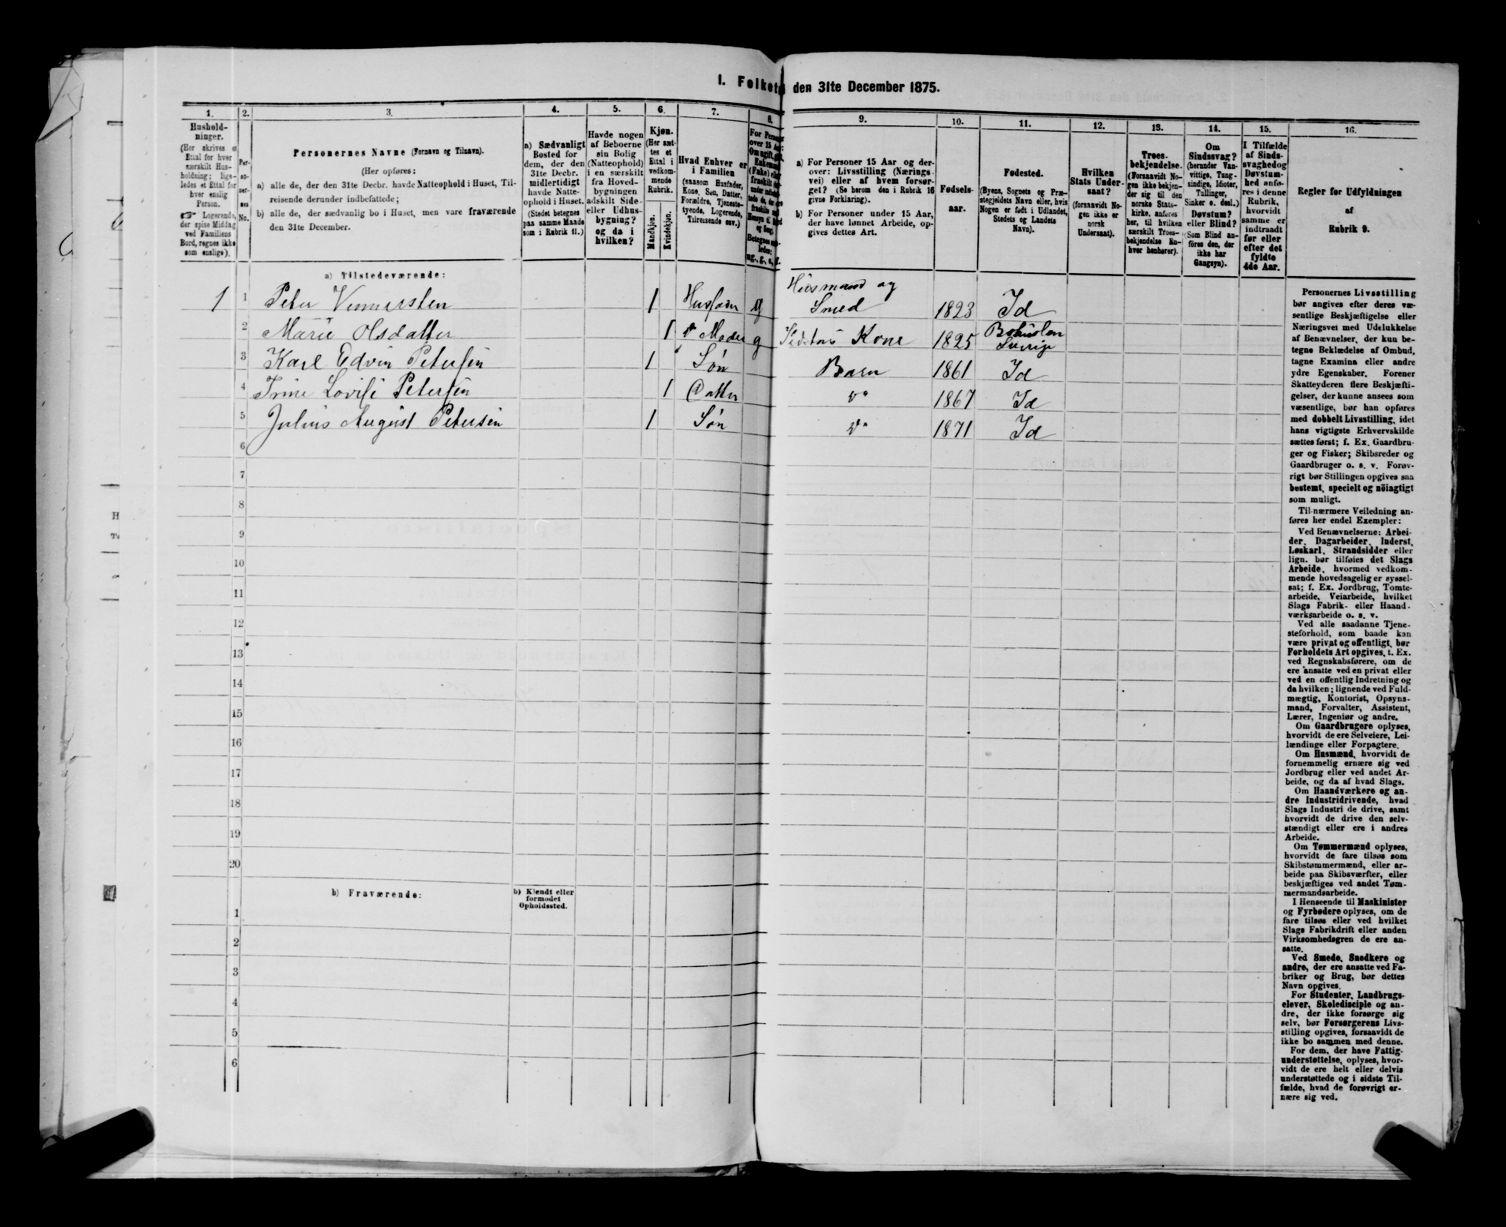 I. Folket den 31te December 1875.
1. 2. 3. 4. 5. 6. 7. 8. 9. 10. 11. 12. 13. 14. 15. 16.
Husholdninger.
(Her skrives et Ettal for hver særskilt Husholdning; ligeledes et Ettal for hver enslig Person.
☞ Logerende, der spise Middag ved Familiens Bord, regnes ikke som enslige).
Personernes No.
Personernes Navne (Fornavn og Tilnavn).
(Her opføres:
a) alle de, der den 31te Decbr. havde Natteophold i Huset, Tilreisende derunder indbefattede;
b) alle de, der sædvanlig bo i Huset, men vare fraværende den 31te December.
a) Sædvanligt Bosted for dem, der den 31te Decbr. midlertidigt havde Natteophold i Huset. (Stedet betegnes paa samme Maade som i Rubrik 11.)
Havde nogen af Beboerne sin Bolig (Natteophold) i en særskilt fra Hovedbygningen adskilt Side- eller Udhusbygning? og da i hvilken?
Kjøn. (Her sættes et Ettal i vedkommende Rubrik.
Mandkjøn. Kvindekjøn.
Hvad Enhver er i Familien (saasom Husfader, Kone, Søn, Datter, Forældre, Tjenestetyende, Logerende, Tilreisende osv.)
a) For Personer 15 Aar og derover: Livsstilling (Næringsvei) eller af hvem forsørget? (Se herom den i Rubrik 16 givne Forklaring).
b) For Personer under 15 Aar, der have lønnet Arbeide, opgives dettes Art.
Fødselsaar.
Fødested.
(Byens, Sognets og Præstegjeldets Navn eller, hvis Nogen er født i Udlandet, Stedets og Landets Navn).
Hvilken Stats Undersaat? (forsaavidt Nogen ikke er norsk Undersaat).
Troesbekjendelse. (Forsaavidt Nogen ikke bekjender sig til den norske Statskirke, anføres her, til hvilken særskilt Troesbekjendelse Enhver henhører).
Om Sindssvag? (herunder Vanvittige, Tungsindige, Idioter, Tullinger, Sinker o. desl.) Døvstum? eller Blind? (Som Blind anføres den, der ikke har Gangsyn).
I Tilfælde af Sindssvaghed og Døvstumhed anføres i denne Rubrik, hvorvidt samme er indtraadt før eller efter det fyldte 4de Aar.
Regler for Udfyldningen
af
Rubrik 9.
a) Tilstedeværende:
1 1 Peter 1 Husfader g Huusmand og Smed 1823 Id
2 Marie Olsdatter 1 Moder g Kone 1825 Bohuslen Sverige
3 Karl Edvin Petersen 1 Søn Barn 1861 Id
4 Trine Lovise Petersen 1 Datter do 1867 Id
5 Julius August Petersen 1 Søn do 1871 Id
6
7
8
9
10
11
12
13
14
15
16
17
18
19
20
b) Fraværende: b) Kjendt eller formodet Opholdssted.
1
2
3
4
5
6
Personernes Livsstilling
bør angives efter deres væsentlige
Beskjæftigelse eller
Næringsvei med Udelukkelse
af Benævnelser, der kun betegne
Beklædelse af Ombud,
tagne Examina eller andre
ydre Egenskaber. Forener
Skatteyderen flere Beskjæftigelser,
der kunne ansees som
væsentlige, bør han opføres
med dobbelt Livsstilling, idet
hans vigtigste Erhvervskilde
sættes først; f. Ex. Gaardbruger
og Fisker; Skibsreder og
Gaardbruger o. s. v. Forøvrigt
bør Stillingen opgives saa
bestemt, specielt og nøiagtigt
som muligt.
Til nærmere Veiledning anføres
her endel Exempler:
Ved Benævnelserne: Arbeider,
Dagarbeider, Inderst,
Løskarl, Strandsidder eller
lign. bør tilføies det Slags
Arbeide, hvormed vedkommende
hovedsagelig er sysselsat;
f. Ex. Jordbrug, Tomtearbeide,
Veiarbeide, hvilket
Slags Fabrik- eller Haandværksarbeide
o. s. v.
Ved alle saadanne Tjenesteforhold,
som baade kan
være privat og offentligt, bør
Forholdets Art opgives, t. Ex.
ved Regnskabsførere, om de
ere ansatte ved en privat eller
ved en offentlig Indretning og
da hvilken; lignende ved Fuldmægtig,
Kontorist, Opsynsmand,
Forvalter, Assistent,
Lærer, Ingeniør og andre.
Om Gaardbrugere oplyses,
hvorvidt de ere Selveiere, Leilændinge
eller Forpagtere.
Om Husmænd, hvorvidt de
fornemmelig ernære sig ved
Jordbrug eller ved andet Arbeide,
og da af hvad Slags.
Om Haandværkere og andre
Industridrivende, hvad
Slags Industri de drive, samt
hvorvidt de drive den selvstændigt
eller ere i andres
Arbeide.
Om Tømmermænd oplyses,
hvorvidt de fare tilsøs som
Skibstømmermænd, eller arbeide
paa Skibsværfter, eller
beskjæftiges ved andet Tømmermandsarbeide.
I Henseende til Maskinister
og Fyrbødere oplyses, om de
fare tilsøs eller ved hvilket
Slags Fabrikdrift eller anden
Virksomhedsgren de ere ansatte.
Ved Smede, Snedkere og
andre, der ere ansatte ved Fabriker
og Brug, bør dettes
Navn opgives.
For Studenter, Landbrugselever,
Skoledisciple og andre,
der ikke forsørge sig
selv, bør Forsørgerens Livsstilling
opgives, forsaavidt de
ikke bo sammen med denne.
For dem, der have Fattigunderstøttelse,
oplyses, hvorvidt
de ere helt eller delvis
understøttede og i sidste Tilfælde,
hvad de forøvrigt ernære
sig ved.